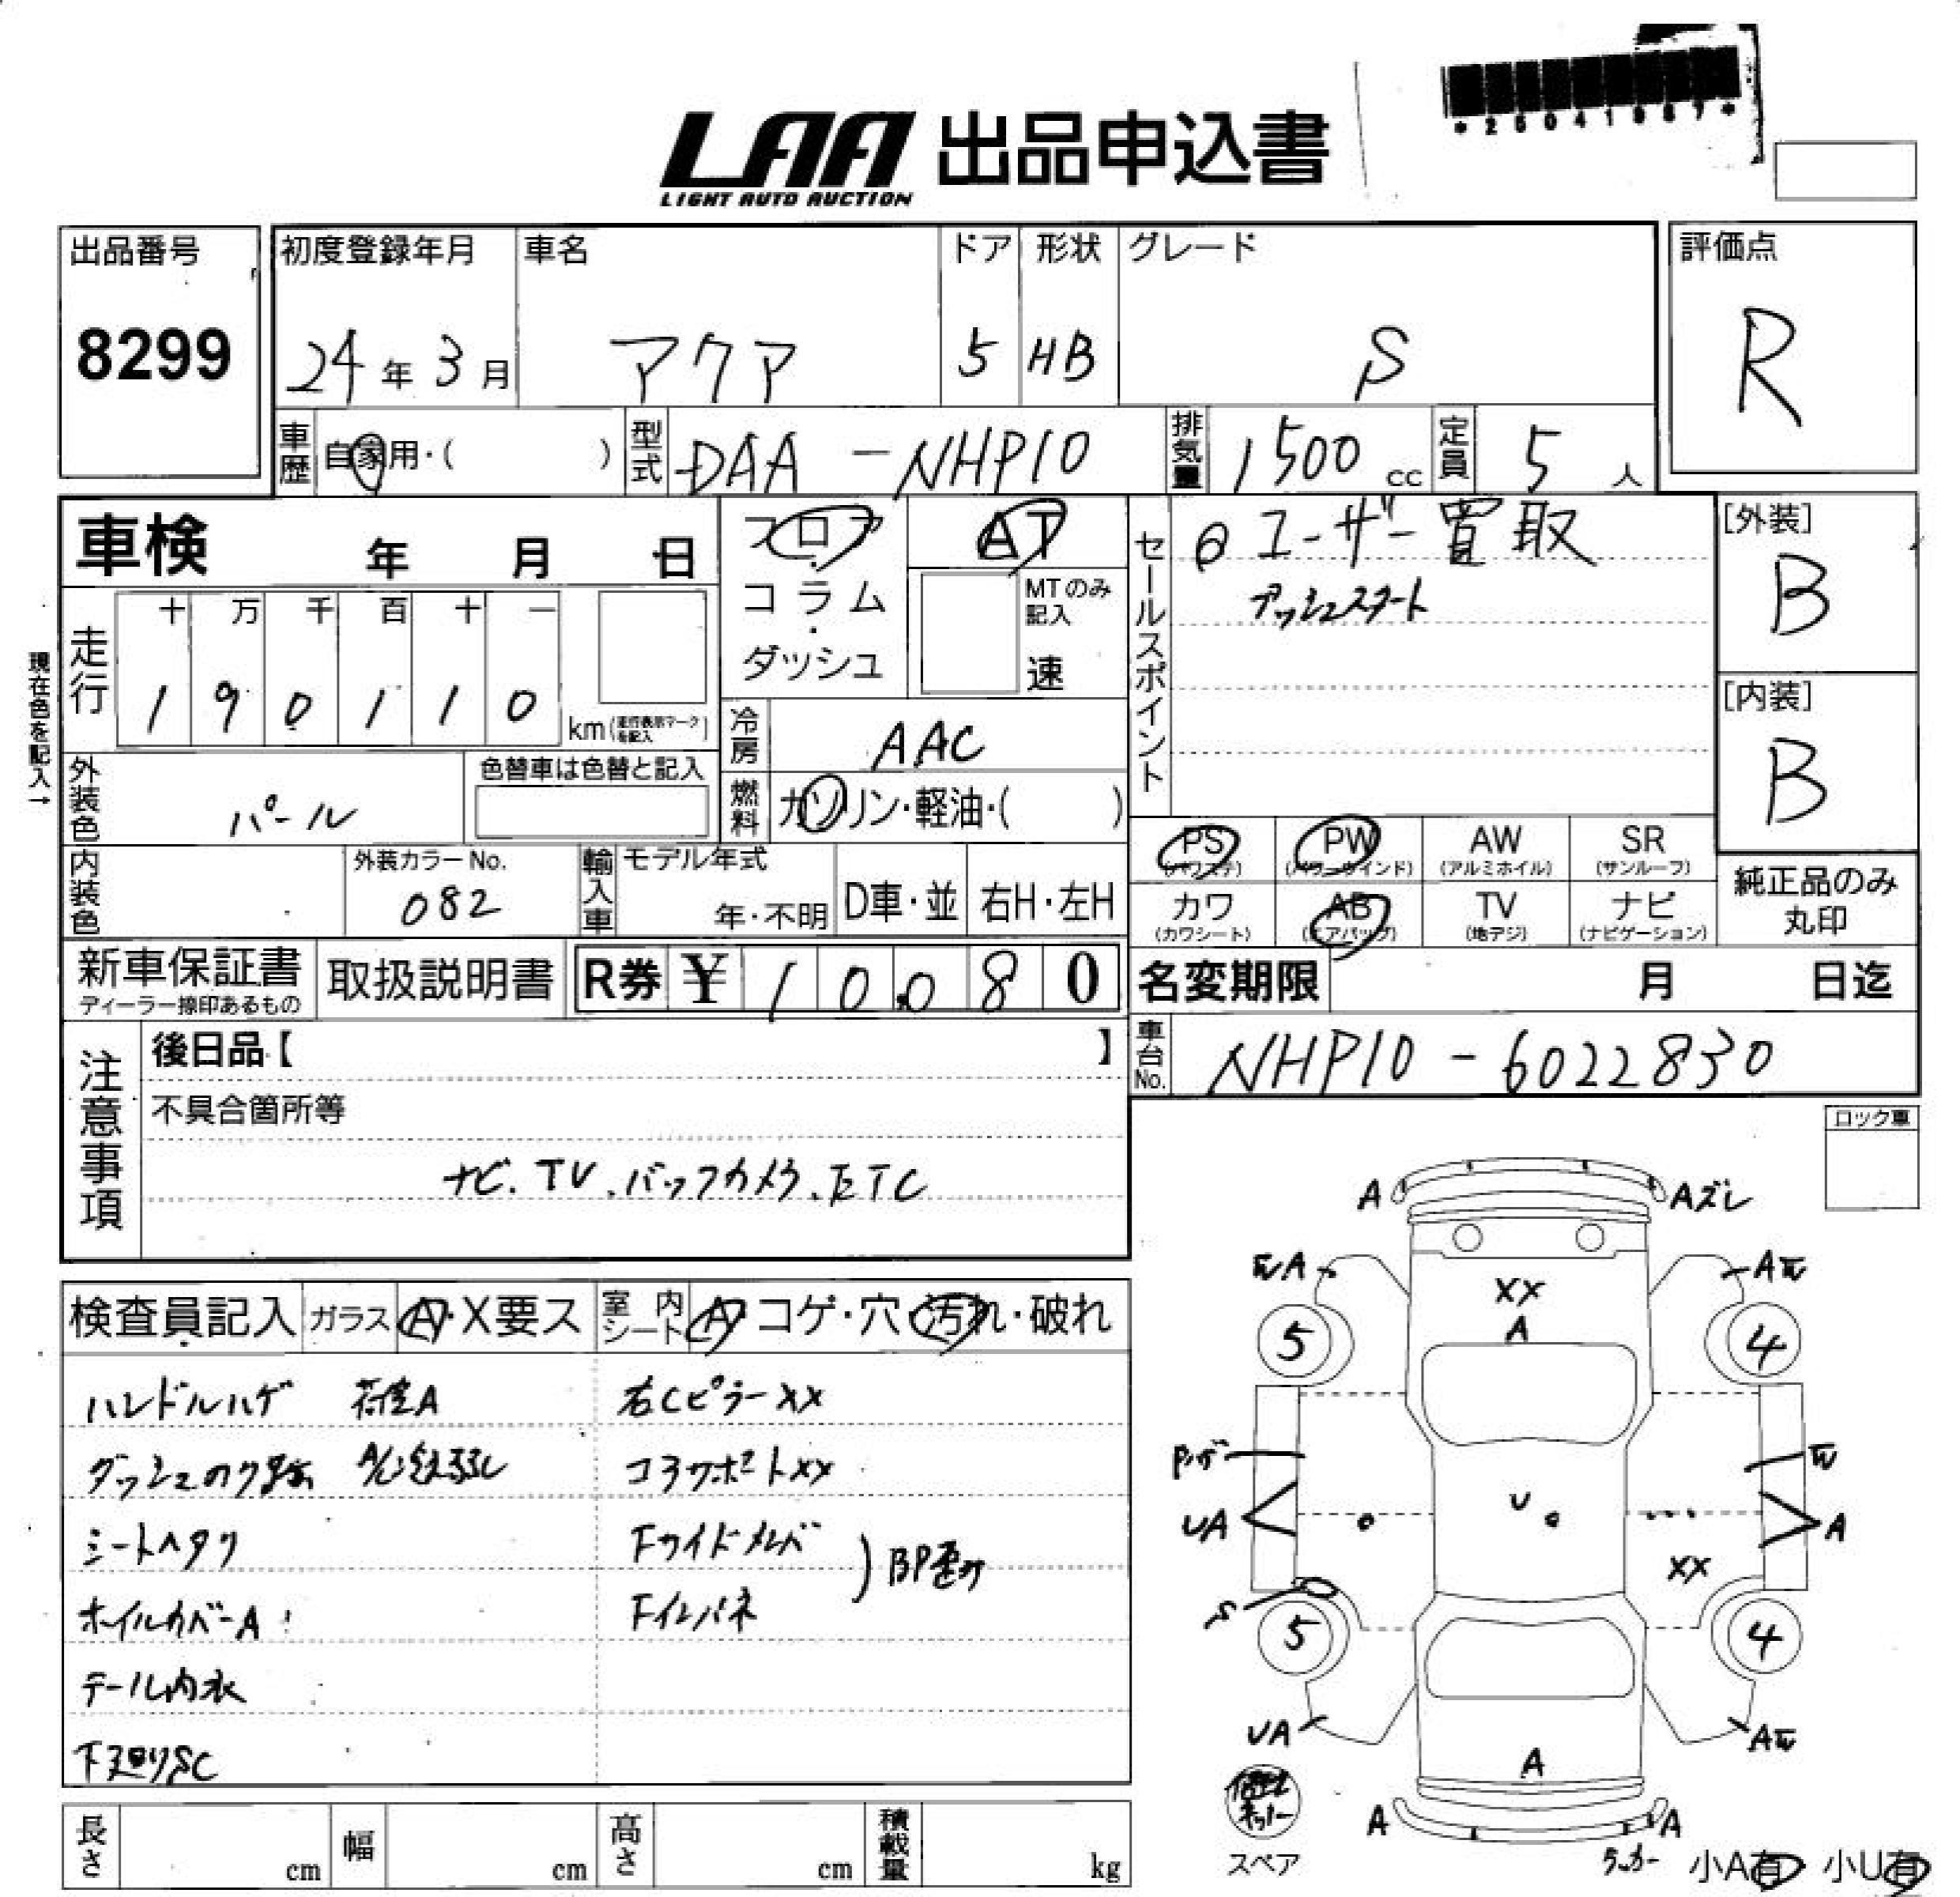 *25041987*
LAA 出品申込書
LIGHT AUTO AUCTION
出品番号 初度登録年月 車名 ドア 形状 グレード 評価点
8299 24年3月 アクア 5 HB S R
車歴 自家用・( ) 型式 DAA-NHP10 排気量 1500cc 定員 5人
車検 年 月 日 フロア・コラム・ダッシュ AT
MTのみ記入 速
セールスポイント ◎ユーザー買取
プッシュスタート
[外装] B
[内装] B
現在色を記入→
走行 十 万 千 百 十 一
1 9 0 1 1 0 km(走行表示マークを記入)
冷房 AAC
外装色 パール 色替車は色替と記入
燃料 ガソリン・軽油・( )
PS(パワステ) PW(パワーウインド) AW(アルミホイル) SR(サンルーフ)
カワ(カワシート) AB(エアバッグ) TV(地デジ) ナビ(ナビゲーション)
純正品のみ丸印
内装色 外装カラーNo. 082 輸入車 モデル年式 年・不明 D車・並 右H・左H
新車保証書 ディーラー捺印あるもの 取扱説明書 R券 ¥10,080
名変期限 月 日迄
車台No. NHP10-6022830
注意事項 後日品【 】
不具合箇所等
ナビ.TV.バックカメラ.ETC
ロック車
検査員記入 ガラス A・X要ス 室内シート A・コゲ・穴・汚れ・破れ
ハンドルハゲ 荷室A 右CピラーXX
ダッシュ A/C コアサポートXX
シートヘタリ Fサイドメンバ
ホイルカバーA Fインパネ
BP歪み
テール内水
下廻りSC
A Aズレ
A A
XX
A
5 4
U
UA A
XX
S
5 4
UA A
A
A A
スペア
小A有 小U有
長さ cm 幅 cm 高さ cm 積載量 kg